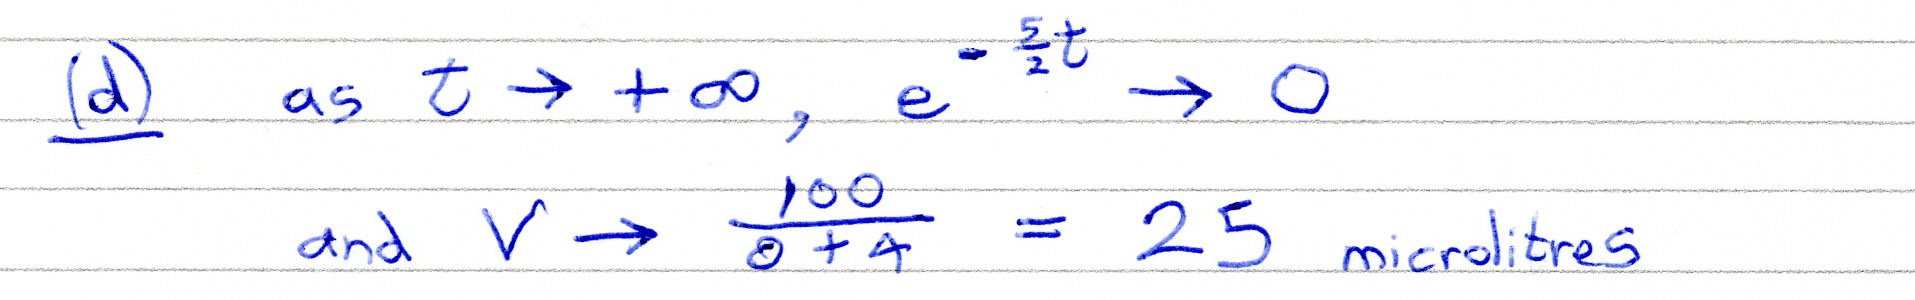 (d) as t → +∞, e^{-\frac{5}{2}t} → 0
and V → \frac{100}{0+4} = 25 microlitres